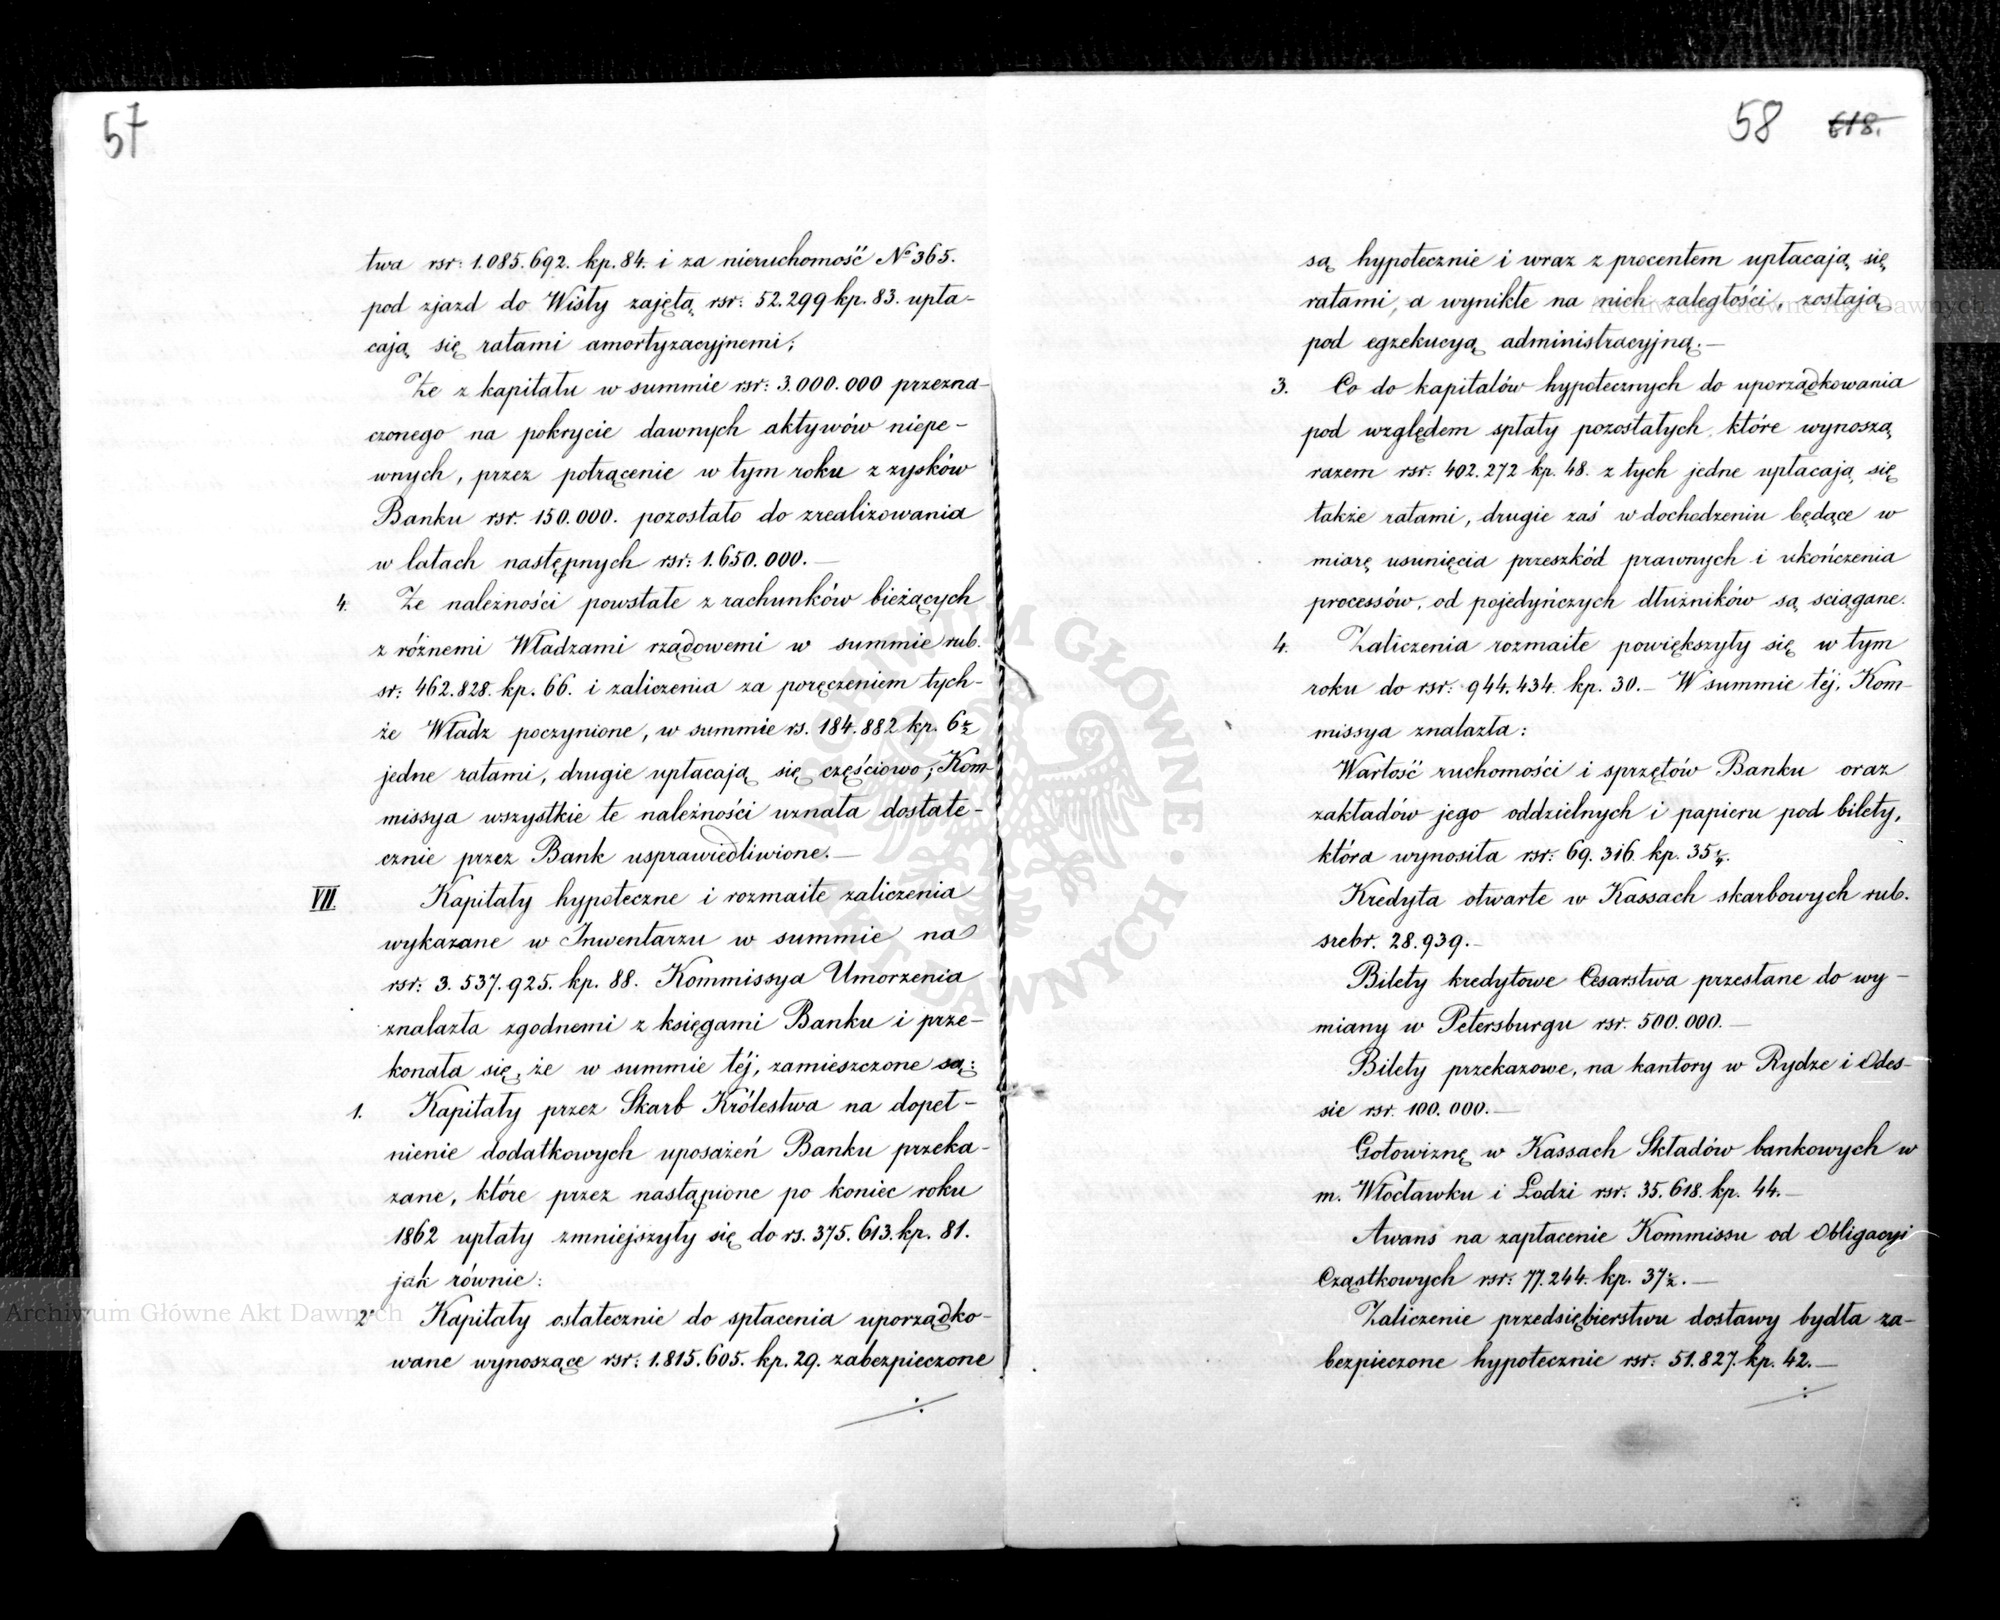 57
twa rsr: 1.085.692. kp. 84. i za nieruchomość № 365.
pod zjazd do Wisły zajętą, rsr: 52.299 kp. 83. upła-
cają się ratami amortyzacyjnemi;
Że z kapitału w summie rsr: 3.000.000 przezna-
czonego na pokrycie dawnych aktywów niepe-
wnych, przez potrącenie w tym roku z zysków
Banku rsr. 150.000. pozostało do zrealizowania
w latach następnych rsr: 1.650.000.—
4. Że należności powstałe z rachunków bieżących
z różnemi Władzami rządowemi w summie rub.
sr: 462.828. kp. 66. i zaliczenia za poręczeniem tych-
że Władz poczynione, w summie rs. 184.882 kp. 6½
jedne ratami, drugie upłacają się częściowo; Kom-
missya wszystkie te należności uznała dostate-
cznie przez Bank usprawiedliwione.—
VII. Kapitały hypoteczne i rozmaite zaliczenia
wykazane w Inwentarzu w summie na
rsr: 3.537.925. kp. 88. Kommissya Umorzenia
znalazła zgodnemi z księgami Banku i prze-
konała się, że w summie téj, zamieszczone są:
1. Kapitały przez Skarb Królestwa na dopeł-
nienie dodatkowych uposażeń Banku przeka-
zane, które przez nastąpione po koniec roku
1862 upłaty zmniejszyły się do rs. 375.613. kp. 81.
jak równie:
2 Kapitały ostatecznie do spłacenia uporządko-
wane wynoszące rsr: 1.815.605. kp. 29. zabezpieczone
58 618.
są hypotecznie i wraz z procentem upłacają się
ratami, a wynikłe na nich zaległości, zostają
pod egzekucyą administracyjną.—
3. Co do kapitałów hypotecznych do uporządkowania
pod względem spłaty pozostałych, które wynoszą
razem rsr: 402.272 kp. 48. z tych jedne upłacają się
także ratami, drugie zaś w dochodzeniu będące w
miarę usunięcia przeszkód prawnych i ukończenia
processów, od pojedyńczych dłużników są sciągane.
4. Zaliczenia rozmaite powiększyły się w tym
roku do rsr: 944.434. kp. 30.— W summie téj, Kom-
missya znalazła:
Wartość ruchomości i sprzętów Banku oraz
zakładów jego oddzielnych i papieru pod bilety,
która wynosiła rsr: 69.316. kp. 35¼.
Kredyta otwarte w Kassach skarbowych rub.
srebr. 28.939.—
Bilety kredytowe Cesarstwa przesłane do wy-
miany w Petersburgu rsr. 500.000.—
Bilety przekazowe, na kantory w Rydze i Odes-
sie rsr. 100.000.—
Gotowiznę w Kassach Składów bankowych w
m. Włocławku i Łodzi rsr: 35.618. kp. 44.—
Awans na zapłacenie Kommissu od Obligacyi
Cząstkowych rsr: 77.244. kp. 37½.—
Zaliczenie przedsiębierstwu dostawy bydła za-
bezpieczone hypotecznie rsr: 51.827. kp. 42.—
Archiwum Główne Akt Dawnych
Archiwum Główne Akt Dawnych
ARCHIWUM GŁÓWNE · AKT DAWNYCH ·